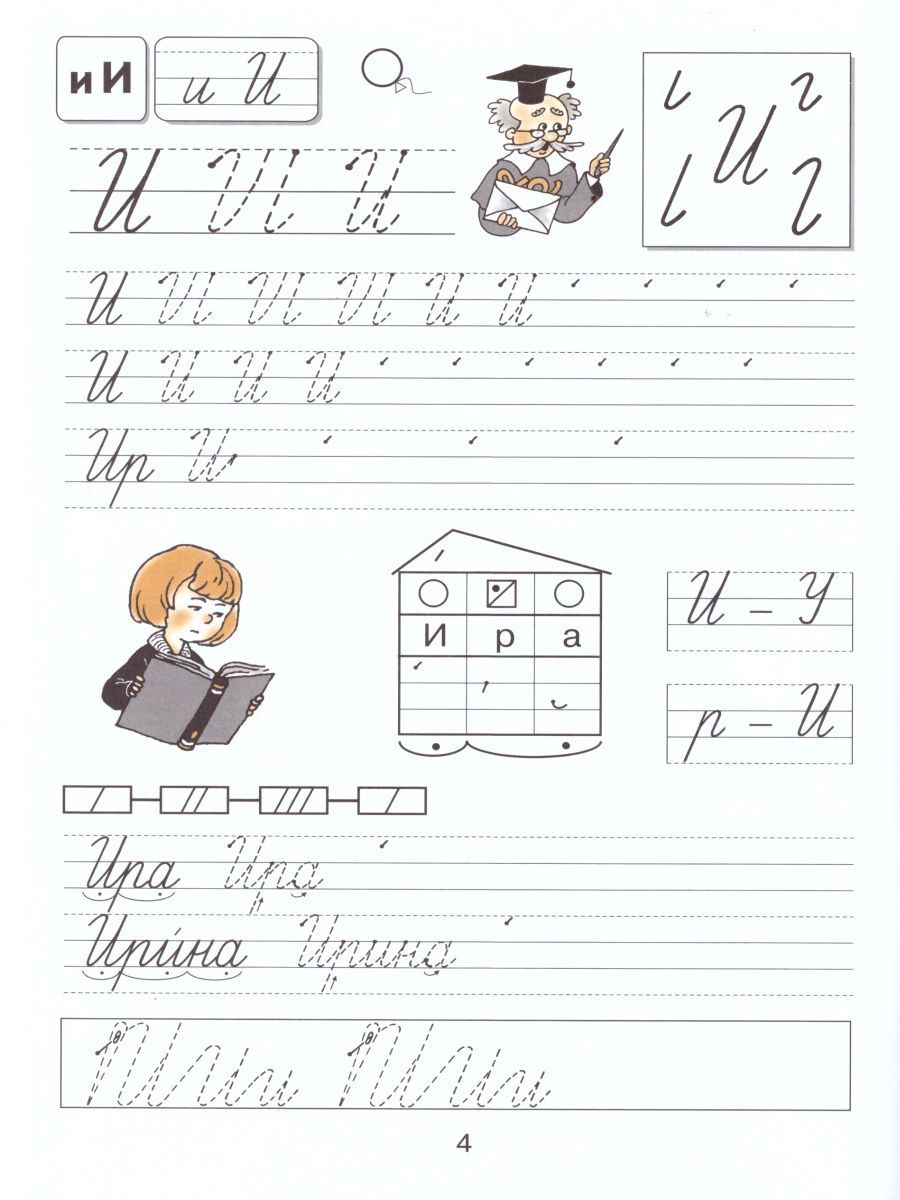 и И и И
И И И
И И И И И И
И И И И
Ир И
И р а
И – У
р – И
Ира Ира
Ири́на Ирина
4